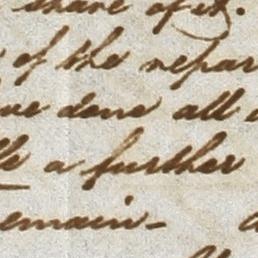 share of it.
of the repar
ve done all
le a further
emain-